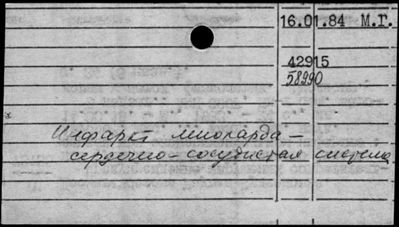 16.01.84 М.Г.
42915
58990
Инфаркт миокарда –
сердечно-сосудистая система